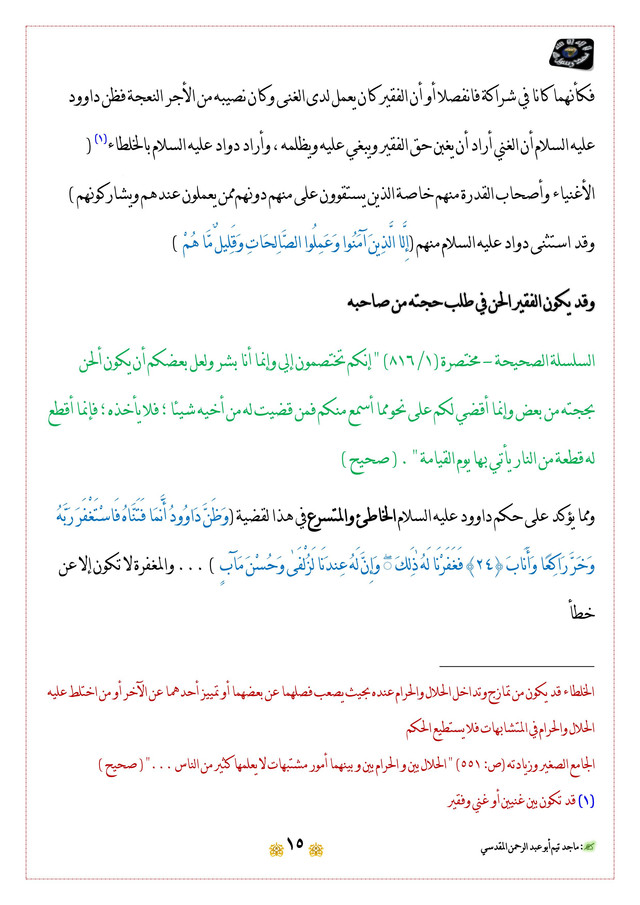 فكأنهما كانا في شراكة فانفصلا أو أن الفقير كان يعمل لدى الغنى وكان نصيبه من الأجر النعجة فظن داوود
عليه السلام أن الغني أراد أن يغبن حق الفقير ويبغي عليه ويظلمه ، وأراد دواد عليه السلام بالخلطاء (١) (
الأغنياء وأصحاب القدرة منهم خاصة الذين يستقوون على منهم دونهم ممن يعملون عندهم ويشاركونهم )
وقد استثنى دواد عليه السلام منهم (إِلَّا الَّذِينَ آمَنُوا وَعَمِلُوا الصَّالِحَاتِ وَقَلِيلٌ مَّا هُمْ )
وقد يكون الفقير الحن في طلب حجته من صاحبه
السلسلة الصحيحة – مختصرة (١/ ٨١٦) " إنكم تختصمون إلي وإنما أنا بشر ولعل بعضكم أن يكون ألحن
بحجته من بعض وإنما أقضي لكم على نحو مما أسمع منكم فمن قضيت له من أخيه شيئا ؛ فلا يأخذه ؛ فإنما أقطع
له قطعة من النار يأتي بها يوم القيامة " . ( صحيح )
ومما يؤكد على حكم داوود عليه السلام الخاطئ والمتسرع في هذا لقضية (وَظَنَّ دَاوُودُ أَنَّمَا فَتَنَّاهُ فَاسْتَغْفَرَ رَبَّهُ
وَخَرَّ رَاكِعًا وَأَنَابَ ﴿٢٤﴾ فَغَفَرْنَا لَهُ ذَٰلِكَ ۖ وَإِنَّ لَهُ عِندَنَا لَزُلْفَىٰ وَحُسْنَ مَآبٍ ) . . . والمغفرة لا تكون إلا عن
خطأ
الخلطاء قد يكون من تمازج وتداخل الحلال والحرام عنده بحيث يصعب فصلهما عن بعضهما أو تمييز أحدهما عن الآخر أو من اختلط عليه
الحلال والحرام في المتشابهات فلا يستطيع الحكم
الجامع الصغير وزيادته (ص: ٥٥١) " الحلال بين و الحرام بين و بينهما أمور مشتبهات لا يعلمها كثير من الناس . . . " ( صحيح )
(١) قد تكون بين غنيين أو غني وفقير
: ماجد تيم أبو عبد الرحمن المقدسي ١٥